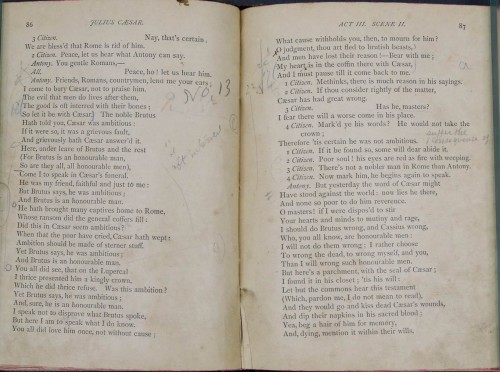 86
JULIUS CÆSAR.
3 Citizen. Nay, that's certain.
We are bless'd that Rome is rid of him.
2 Citizen. Peace, let us hear what Antony can say.
Antony. You gentle Romans,—
All. Peace, ho! let us hear him.
Antony. Friends, Romans, countrymen, lend me your ears;
I come to bury Cæsar, not to praise him.
The evil that men do lives after them,
The good is oft interred with their bones;
So let it be with Cæsar. The noble Brutus
Hath told you, Cæsar was ambitious:
If it were so, it was a grievous fault,
And grievously hath Cæsar answer'd it.
Here, under leave of Brutus and the rest
(For Brutus is an honourable man,
So are they all, all honourable men),
Come I to speak in Cæsar's funeral.
He was my friend, faithful and just to me:
But Brutus says, he was ambitious;
And Brutus is an honourable man.
He hath brought many captives home to Rome,
Whose ransom did the general coffers fill:
Did this in Cæsar seem ambitious?
When that the poor have cried, Cæsar hath wept:
Ambition should be made of sterner stuff.
Yet Brutus says, he was ambitious;
And Brutus is an honourable man.
You all did see, that on the Lupercal
I thrice presented him a kingly crown,
Which he did thrice refuse. Was this ambition?
Yet Brutus says, he was ambitious;
And, sure, he is an honourable man.
I speak not to disprove what Brutus spoke,
But here I am to speak what I do know.
You all did love him once, not without cause;
No. 13
ACT III. SCENE II.
87
What cause withholds you, then, to mourn for him?
O judgment, thou art fled to brutish beasts,
And men have lost their reason!—Bear with me;
My heart is in the coffin there with Cæsar,
And I must pause till it come back to me.
1 Citizen. Methinks, there is much reason in his sayings.
2 Citizen. If thou consider rightly of the matter,
Cæsar has had great wrong.
3 Citizen. Has he, masters?
I fear there will a worse come in his place.
4 Citizen. Mark'd ye his words? He would not take the
crown;
Therefore 'tis certain he was not ambitious.
1 Citizen. If it be found so, some will dear abide it.
2 Citizen. Poor soul! his eyes are red as fire with weeping.
3 Citizen. There's not a nobler man in Rome than Antony.
4 Citizen. Now mark him, he begins again to speak.
Antony. But yesterday the word of Cæsar might
Have stood against the world: now lies he there,
And none so poor to do him reverence.
O masters! if I were dispos'd to stir
Your hearts and minds to mutiny and rage,
I should do Brutus wrong, and Cassius wrong,
Who, you all know, are honourable men:
I will not do them wrong; I rather choose
To wrong the dead, to wrong myself, and you,
Than I will wrong such honourable men.
But here's a parchment, with the seal of Cæsar;
I found it in his closet; 'tis his will:
Let but the commons hear this testament
(Which, pardon me, I do not mean to read),
And they would go and kiss dead Cæsar's wounds,
And dip their napkins in his sacred blood;
Yea, beg a hair of him for memory,
And, dying, mention it within their wills,